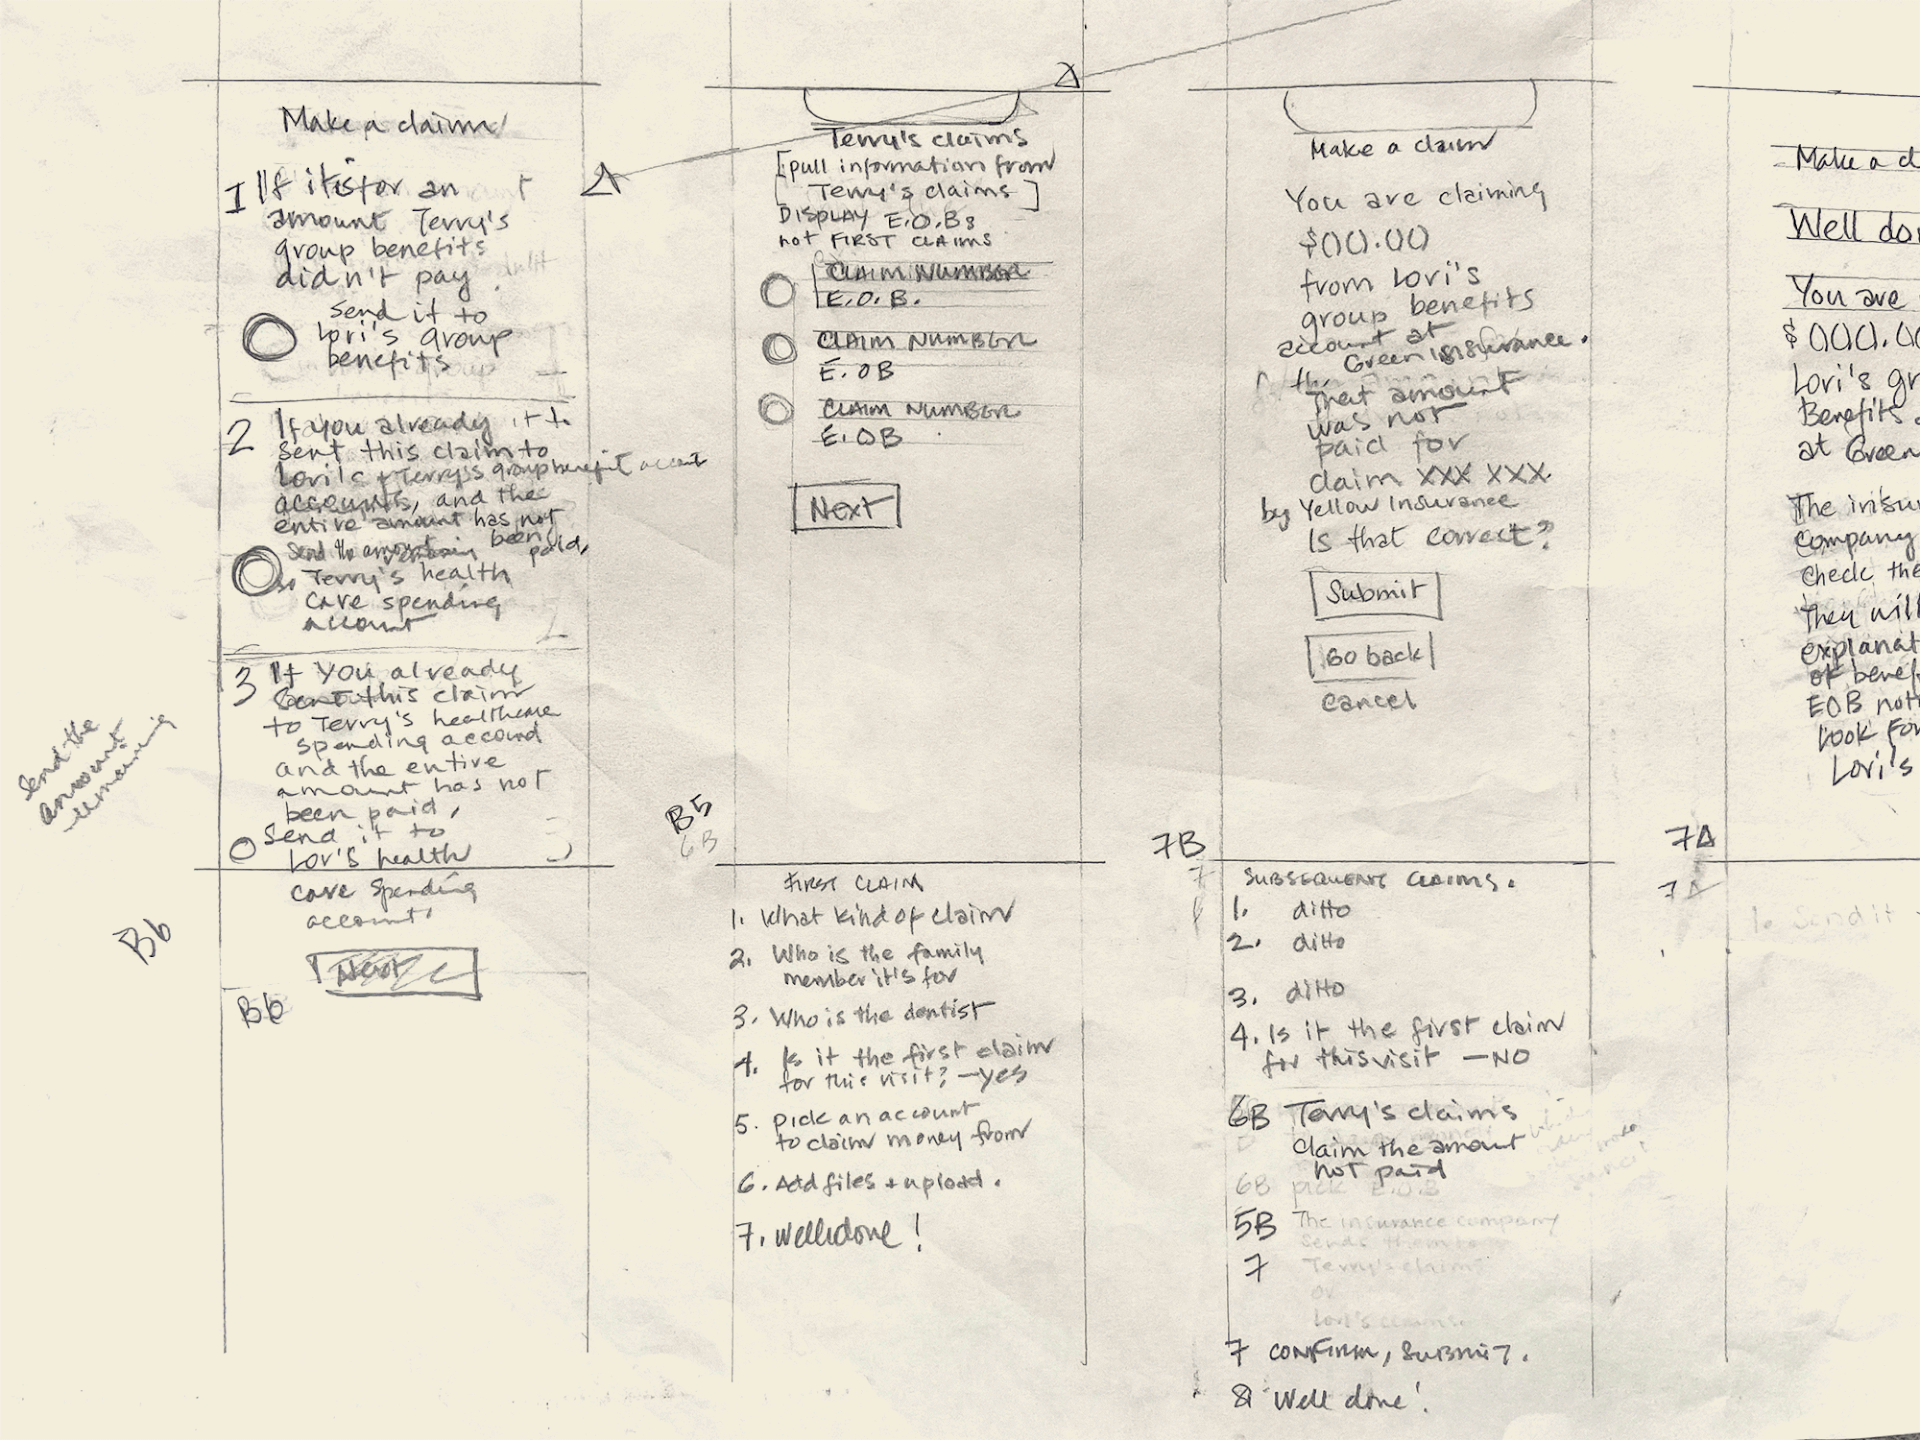 Make a claim
1 If it is for an
amount Terry's
group benefits
didn't pay.
Send it to
Lori's group
benefits
2 If you already
sent this claim to
Lori's + Terry's group benefit account
accounts, and the
entire amount has not
been
paid,
Send the amount
to Terry's health
care spending
account
3 If you already
sent this claim
to Terry's healthcare
spending account
and the entire
amount has not
been paid,
Send it to
Lori's health
care spending
account
Next
Send the
amount
remaining
B6
B6
Terry's claims
[pull information from
Terry's claims]
DISPLAY E.O.Bs
not FIRST CLAIMS
CLAIM NUMBER
E.O.B.
CLAIM NUMBER
E.OB
CLAIM NUMBER
E.OB
Next
B5
6B
FIRST CLAIM
1. What kind of claim
2. Who is the family
member it's for
3. Who is the dentist
4. Is it the first claim
for this visit? —yes
5. pick an account
to claim money from
6. Add files + upload.
7. Well done!
Make a claim
You are claiming
$00.00
from Lori's
group benefits
account at
Green insurance.
that amount
was not
paid for
claim XXX XXX
by Yellow Insurance
Is that correct?
Submit
Go back
cancel
7B
7
SUBSEQUENT CLAIMS.
1. ditto
2. ditto
3. ditto
4. Is it the first claim
for this visit —NO
6B Terry's claims
Claim the amount
not paid
6B pick E.O.B
5B The insurance company
sends them to
7 Terry's claims
or
Lori's claims.
7 CONFIRM, SUBMIT.
8 Well done!
Make a cl
Well don
You are
$000.00
Lori's gr
Benefits
at Green
The insur
company
check the
They will
explanat
of benef
EOB noti
look for
Lori's
7A
7A
1. Send it